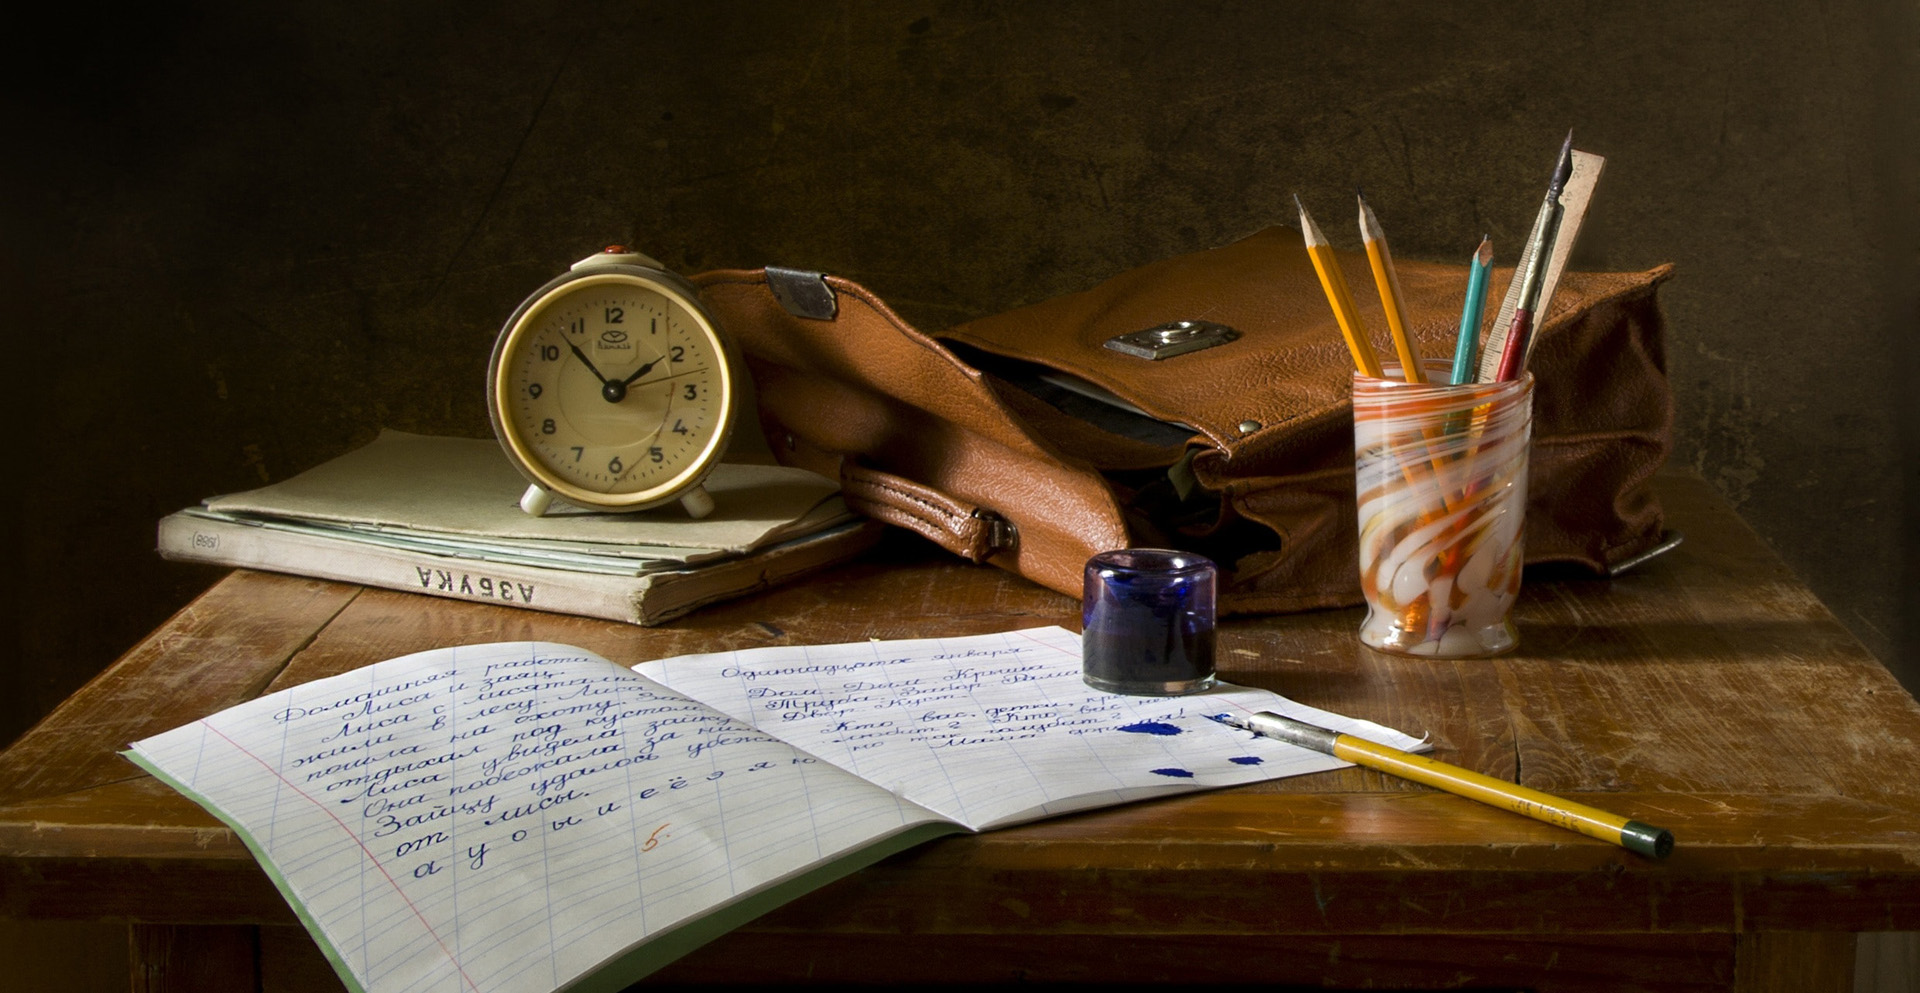 12
11
1
10
2
9
3
8
4
7
5
6
АЗБУКА
(1988)
Домашняя работа
Лиса и заяц.
Лиса с лисятами
жили в лесу. Лиса
пошла на охоту. За
отдыхал под кустом.
Лиса увидела зайку
Она побежала за ним
Зайцу удалось убежа
от лисы.
а у о ы и е ё э я ю
5
Одиннадцатое января.
Дом. Дым. Крыша.
Труба. Забор. Зима
Двор. Куст.
Кто вас, детки, кре
любит? Кто вас не
но так голубит?
Мама